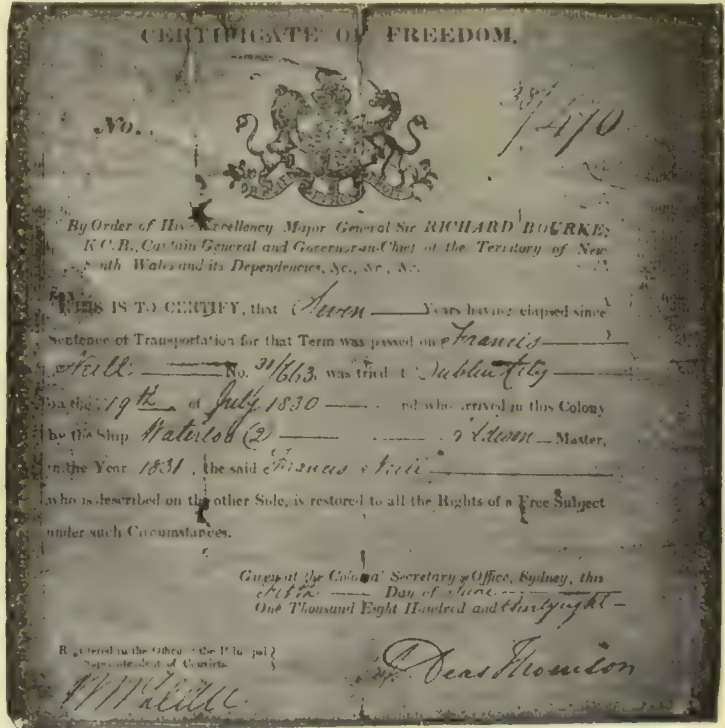 CERTIFICATE OF FREEDOM.
No. 38/470
By Order of His Excellency Major General Sir RICHARD BOURKE,
K.C.B., Captain General and Governor-in-Chief of the Territory of New
South Wales and its Dependencies, &c., &c., &c.
THIS IS TO CERTIFY, that Seven Years having elapsed since
Sentence of Transportation for that Term was passed on Francis
Neill No. 31/663, was tried at Dublin City
on the 19th of July 1830 and who arrived in this Colony
by the Ship Waterloo (2) Master,
in the Year 1831, the said Francis Neill
who is described on the other Side, is restored to all the Rights of a Free Subject
under such Circumstances.
Given at the Colonial Secretary's Office, Sydney, this
Fifth Day of June
One Thousand Eight Hundred and thirty eight
Registered in the Office of the Principal
Superintendent of Convicts.
Deas Thomson